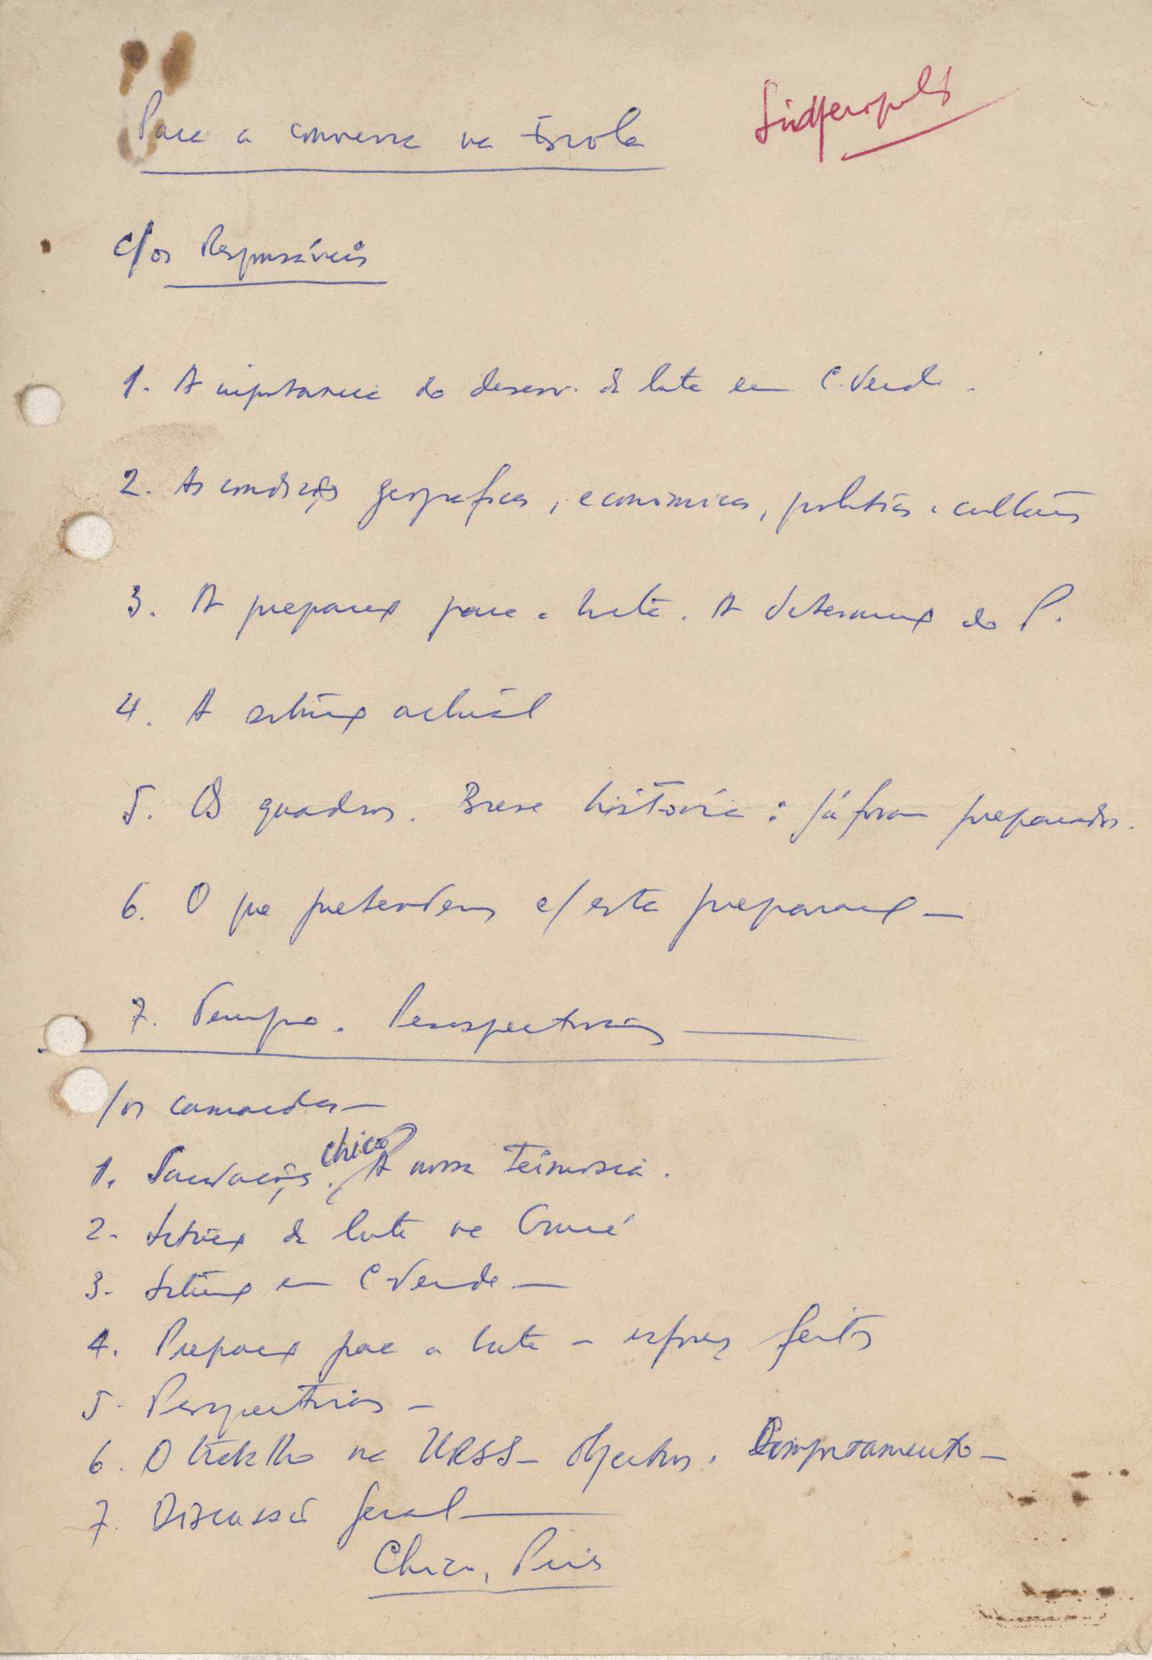 Para a conversa na Escola
Sindferopols
c/os Responsáveis
1. A importancia do desenv. da luta em C. Verde.
2. As condições geograficas, economicas, politicas e culturais
3. A preparação para a luta. A determinação do P.
4. A situação actual
5. Os quadros. Breve história: já foram preparados.
6. O que pretendemos c/ esta preparação —
7. Tempo. Perspectivas
c/os camaradas —
1. Saudações. Chico A nossa teimosia.
2. Situação da luta na Guiné
3. Situação em C-Verde —
4. Preparação para a luta — esforços feitos
5. Perspectivas —
6. O trabalho na URSS — Objectivos. Comportamento —
7. Discussão geral
Chico, Pires